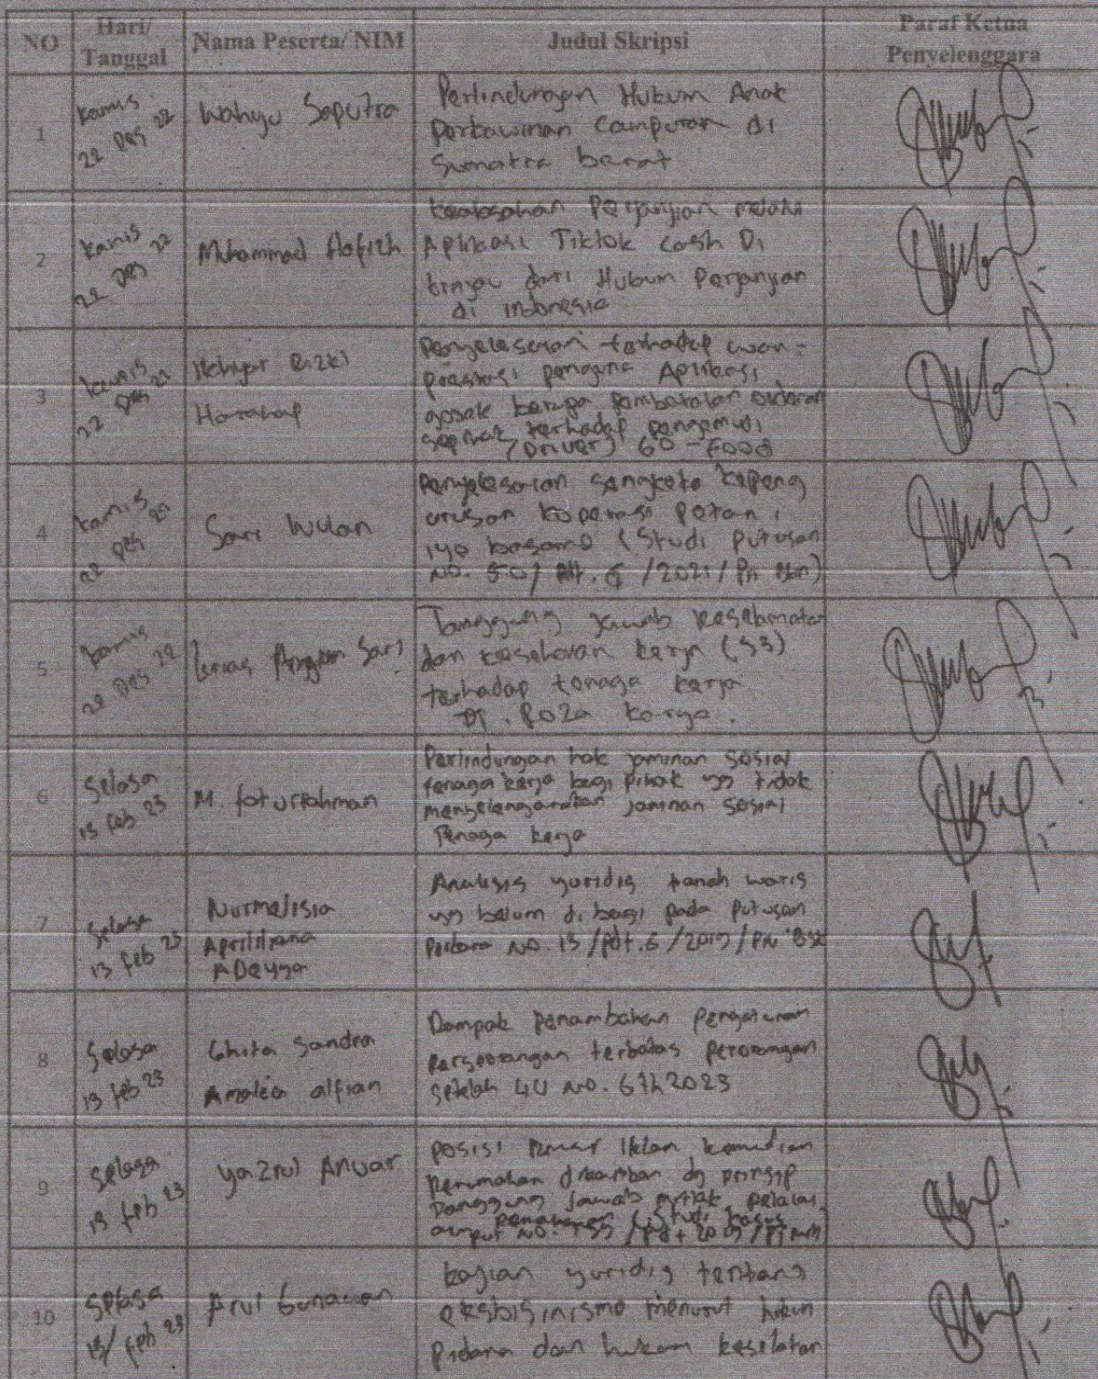 NO
Hari/
Tanggal
Nama Peserta/ NIM
Judul Skripsi
Paraf Ketua
Penyelenggara
1
Kamis
22 Des 22
Wahyu Saputra
Perlindungan Hukum Anak
Perkawinan Campuran di
Sumatra barat
2
Kamis
22 Des 22
Muhammad Hafizh
Keabsahan Perjanjian melalui
Aplikasi Tiktok Cash Di
tinjau dari Hukum Perjanjian
di indonesia
3
Kamis
22 Des 22
Rizki
Harahap
Penyelesaian terhadap wan-
prestasi pengguna Aplikasi
gojek berupa pembatalan orderan
sepihak terhadap pengemudi
(Driver) GO-FOOD
4
Kamis
22 Des 22
Sari Wulan
Penyelesaian sengketa kepeng
urusan koperasi petani
iyo basamo (Studi putusan
NO. 50/ Pdt. G /2021/ PN Bkn)
5
Kamis
22 Des 22
Sari
Tanggung Jawab keselamatan
dan kesehatan kerja
terhadap tenaga kerja
Roza karya.
6
Selasa
13 feb 23
M. faturrahman
Perlindungan hak jaminan sosial
tenaga kerja bagi pihak yg tidak
menyelengarakan jaminan sosial
Tenaga kerja
7
Selasa
13 feb 23
Nurmalisia
Aprilliana
Analisis yuridis tanah waris
yg belum di bagi pada putusan
Perkara NO. 13 /Pdt.G /2019 / PN
8
Selasa
13 feb 23
Ghita Sandra
Amalia alfian
Dampak Penambahan pengaturan
perseorangan terbatas perorangan
Setelah UU NO. 6 th 2023
9
Selasa
13 feb 23
Yazrul Anwar
posisi iklan kemudian
perumahan dg prinsip
Tanggung Jawab mutlak pelaku
(Studi kasus
10
Selasa
13/ feb 23
Arul Gunawan
kajian yuridis tentang
menurut hukum
pidana dan hukum kesehatan